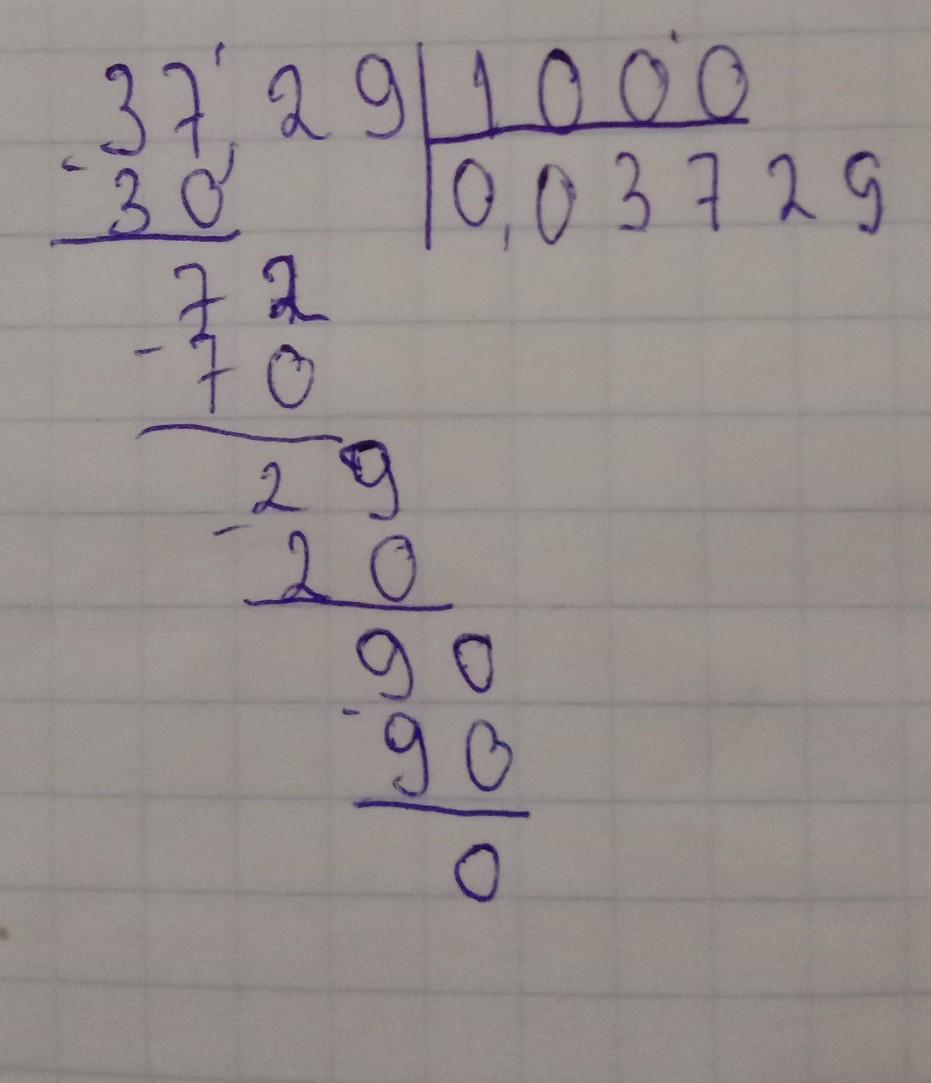 37,29 1000
-30 0,03729
72
-70
29
-20
90
-90
0